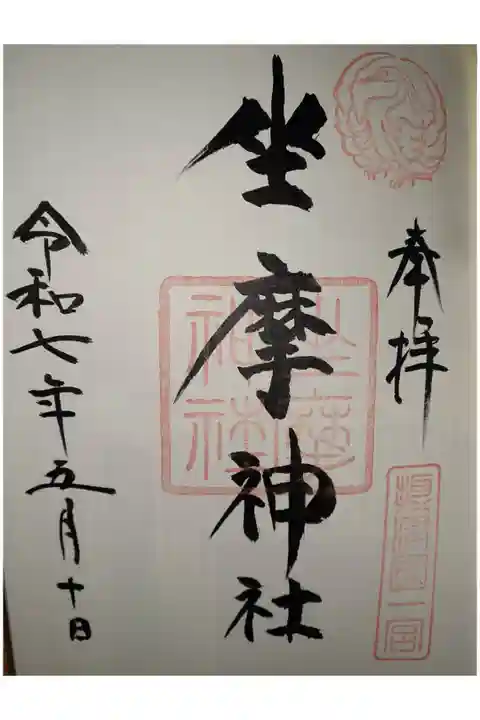 奉拝
摂津国一宮
坐摩神社
坐摩神社
令和七年五月十日